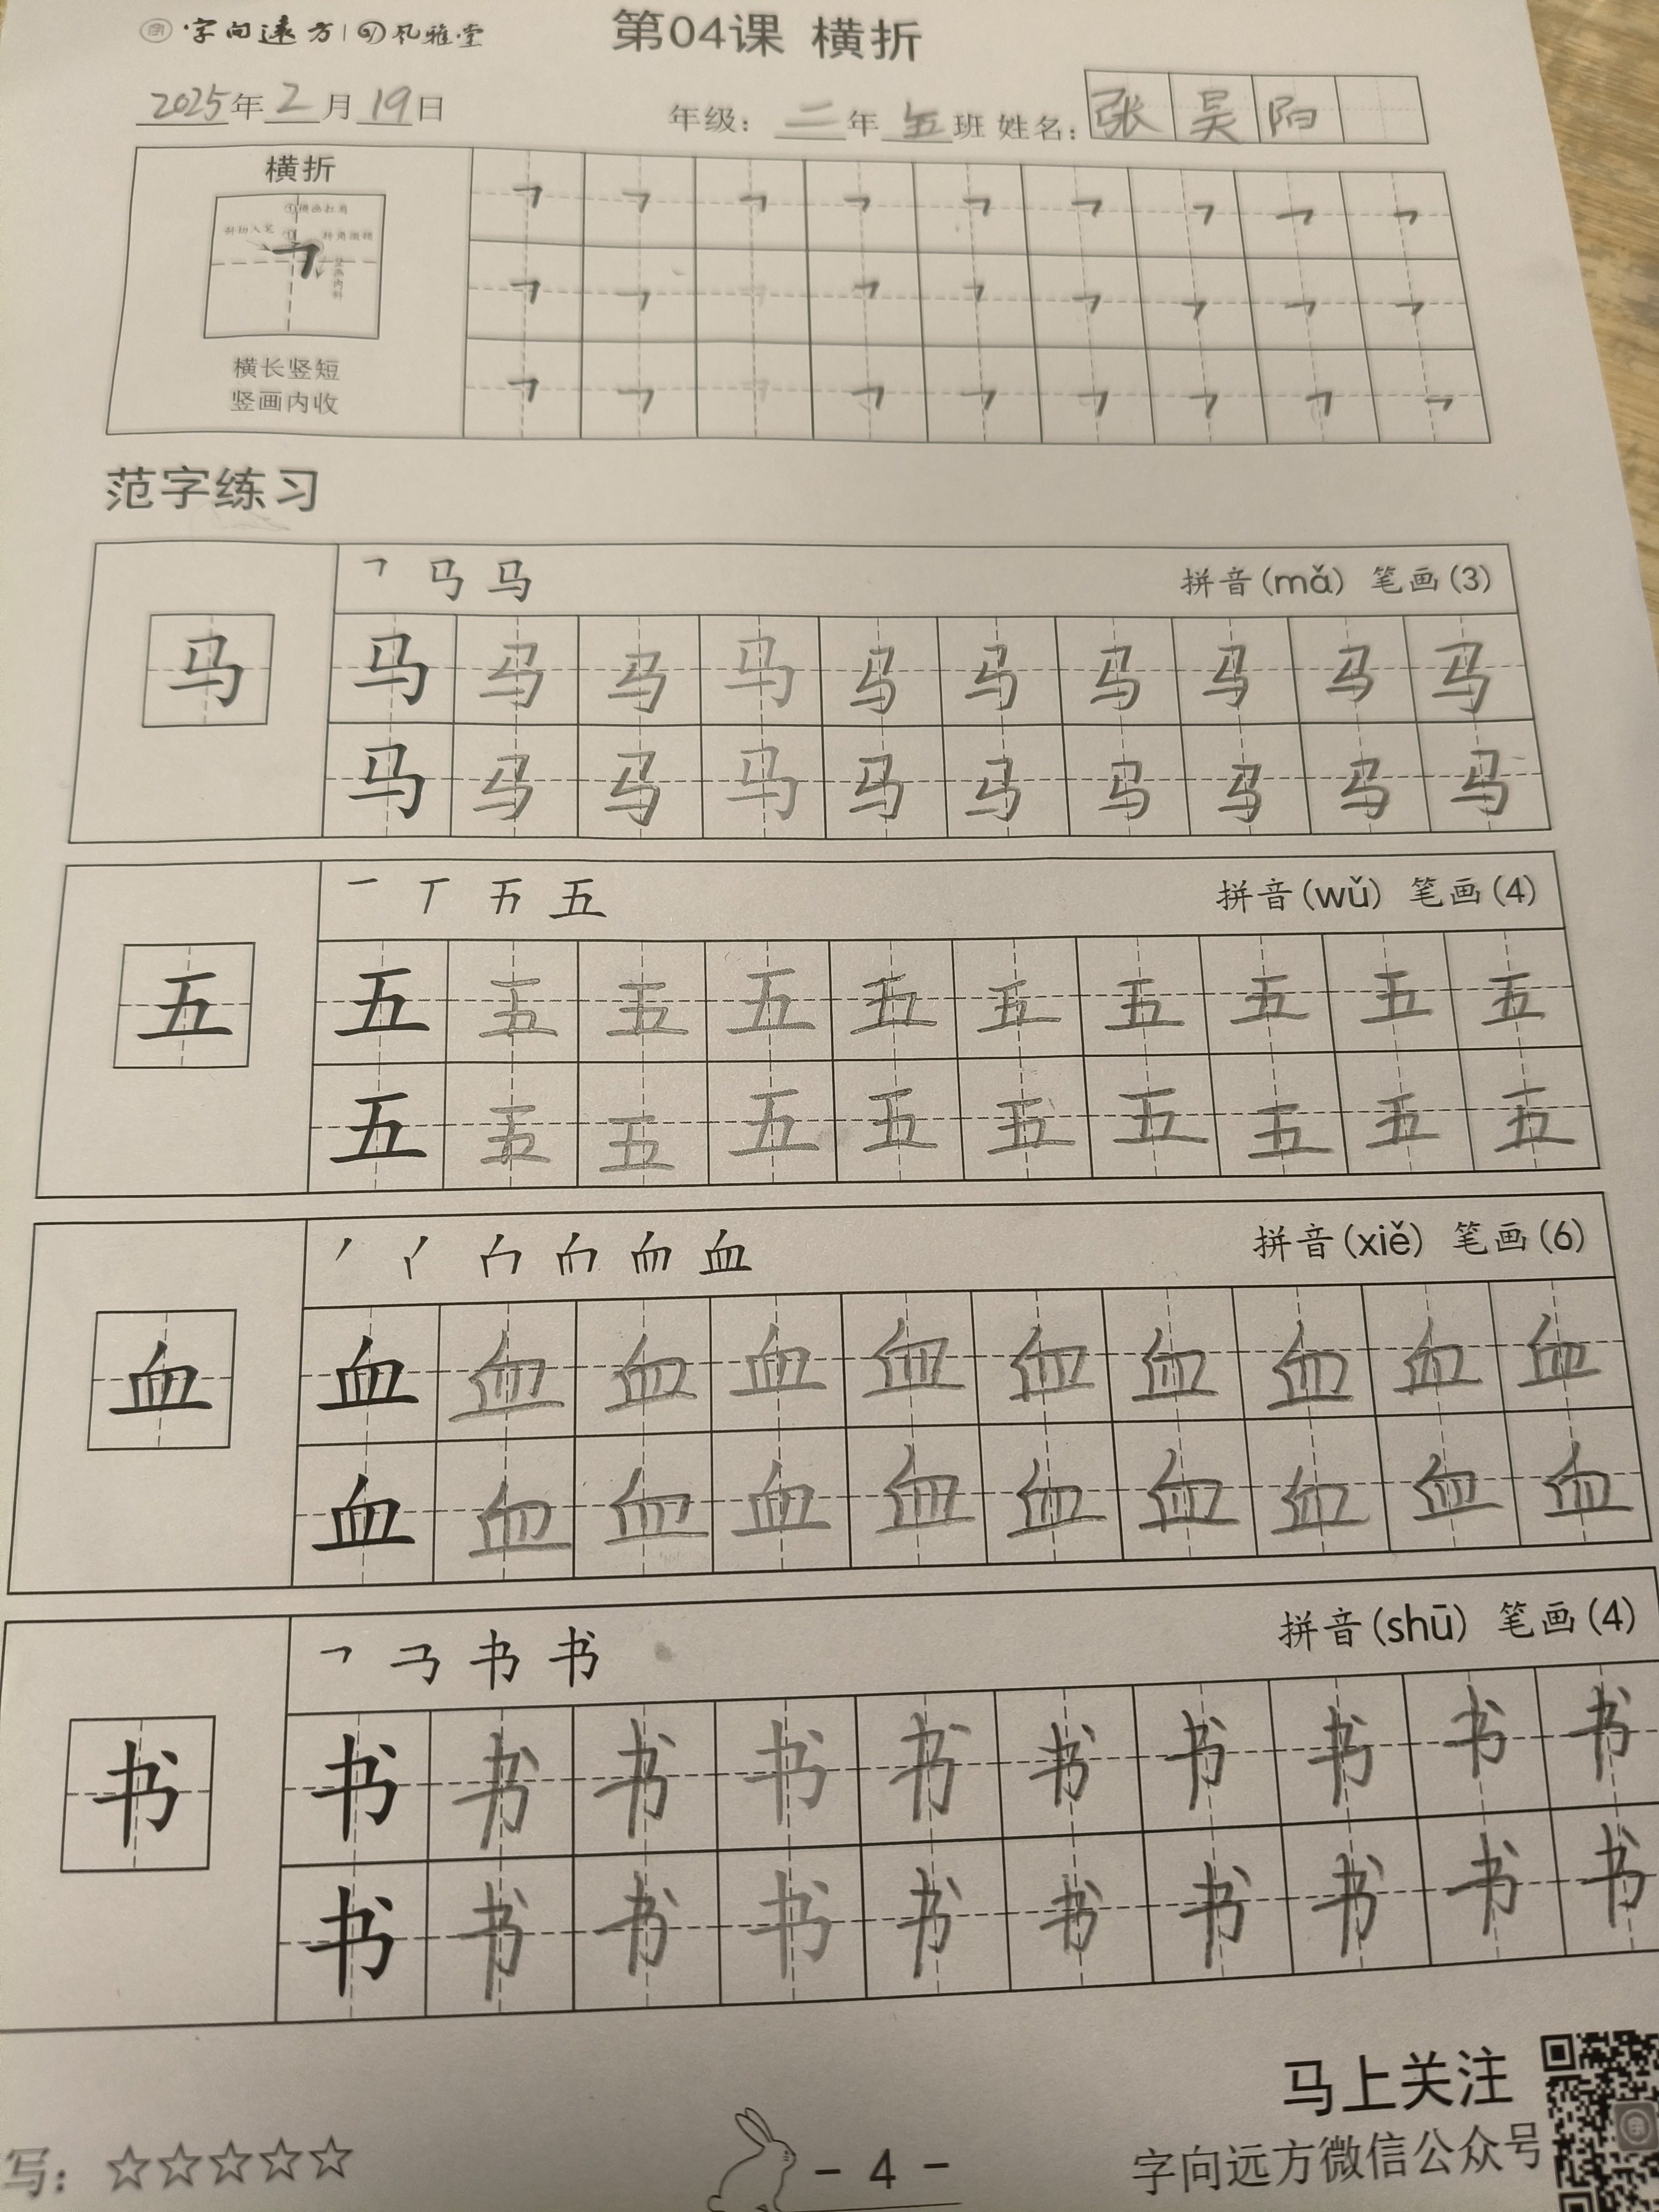 字向远方 | 风雅堂
第04课 横折
2025年2月19日
年级：二年五班 姓名：张吴阳
横折
横长竖短
竖画内收
范字练习
马 拼音(mǎ) 笔画(3)
马 马 马 马 马 马 马 马 马 马 马
马 马 马 马 马 马 马 马 马 马
一 丅 五 拼音(wǔ) 笔画(4)
五 五 五 五 五 五 五 五 五 五 五
五 五 五 五 五 五 五 五 五 五
血 拼音(xiě) 笔画(6)
血 血 血 血 血 血 血 血 血 血 血
血 血 血 血 血 血 血 血 血 血
书 书 拼音(shū) 笔画(4)
书 书 书 书 书 书 书 书 书 书 书
书 书 书 书 书 书 书 书 书 书
马上关注
字向远方微信公众号
写：☆☆☆☆☆
- 4 -